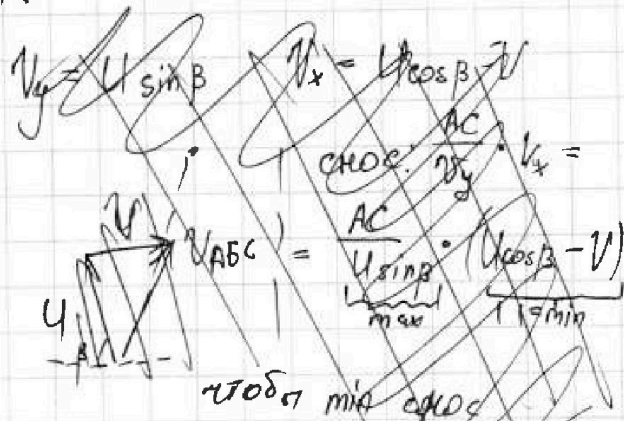 Vy = U sinβ Vx = U cosβ - V
снос: AC/Vy · Vx =
= AC/(U sinβ) · (U cosβ - V)
max | | = min
V
U VАБС
β
чтобы min снос